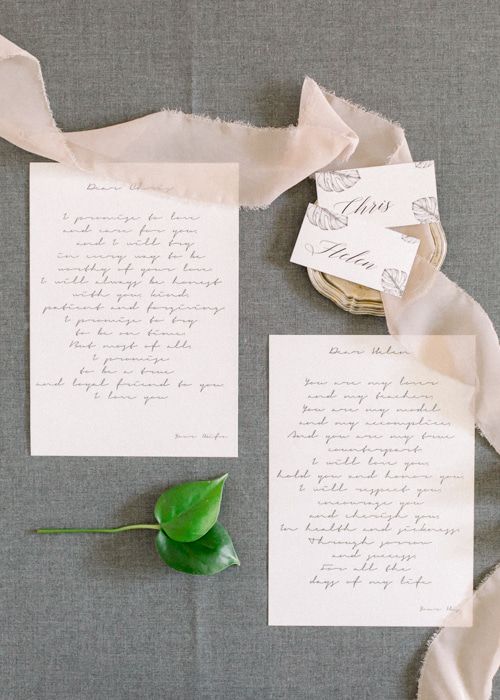 Dear Chris
I promise to love
and care for you,
and I will try
in every way to be
worthy of your love
I will always be honest
with you, kind,
patient and forgiving
I promise to try
to be on time.
But most of all,
I promise
to be a true
and loyal friend to you
I love you
Your Wife
Chris
Helen
Dear Helen
You are my lover
and my teacher,
You are my model
and my accomplice,
And you are my true
counterpart
I will love you,
hold you and honor you,
I will respect you,
encourage you
and cherish you,
In health and sickness,
Through sorrow
and success,
For all the
days of my life
Your